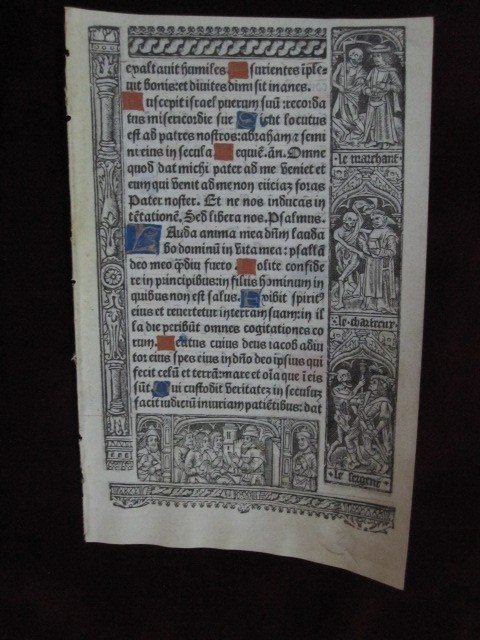 exaltavit humiles Esurientes īple
vit bonis: et divites dimisit inanes.
Suscepit israel puerum suū: recorda
tus misericordie sue Sicut locutus
est ad patres nostros: abraham ⁊ semi
ni eius in secula Requiē. añ. Omne
quod dat michi pater ad me veniet et
eum qui venit ad me non eiiciaz foras
Pater noster. Et ne nos inducas in
tētationē. Sed libera nos. Psalmus.
Lauda anima mea dn̄m lauda
bo dominū in vita mea: psallā
deo meo q̄diu fuero Nolite confide
re in principibus: in filiis hominum in
quibus non est salus. Exibit spiritꝰ
eius et revertetur in terram suam: in il
la die peribūt omnes cogitationes eo
rum. Beatus cuius deus iacob adiu
tor eius spes eius in dn̄o deo ipsius qui
fecit celū et terrā: mare et oīa que ī eis
sūt. Qui custodit veritatez in seculuz
facit iudiciū iniuriam patiētibus: dat
le marchant
le chartreux
le sergent